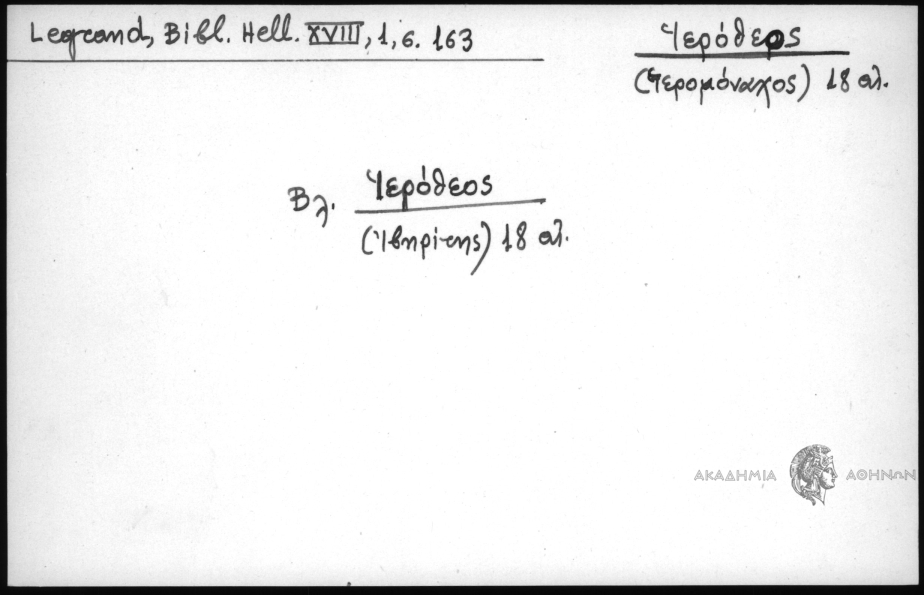 Legrand, Bibl. Hell. XVIII, 1, σ. 163
Ἱερόθεος
(Ἱερομόναχος) 18 αἰ.
Βλ. Ἱερόθεος
(Ἰβηρίτης) 18 αἰ.
ΑΚΑΔΗΜΙΑ ΑΘΗΝΩΝ